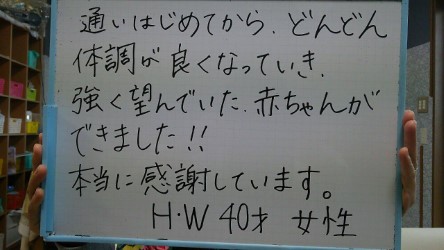 通いはじめてから、どんどん
体調が良くなっていき、
強く望んでいた、赤ちゃんが
できました!!
本当に感謝しています。
H・W 40才 女性